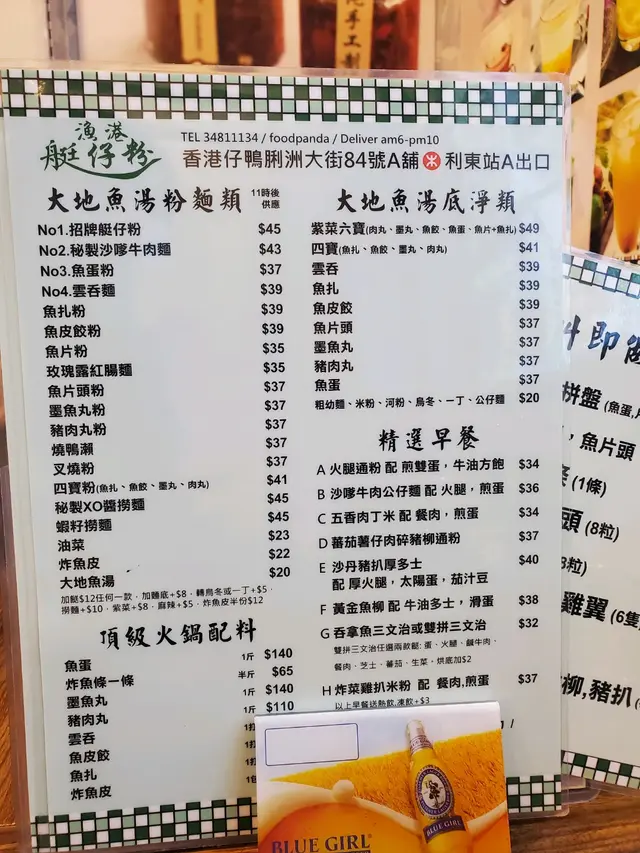 漁港
艇仔粉
TEL 34811134 / foodpanda / Deliver am6-pm10
香港仔鴨脷洲大街84號A鋪 利東站A出口
大地魚湯粉麵類 11時後供應
No1.招牌艇仔粉 $45
No2.秘製沙嗲牛肉麵 $43
No3.魚蛋粉 $37
No4.雲吞麵 $39
魚扎粉 $39
魚皮餃粉 $39
魚片粉 $35
玫瑰露紅腸麵 $35
魚片頭粉 $37
墨魚丸粉 $37
豬肉丸粉 $37
燒鴨瀨 $37
叉燒粉 $37
四寶粉(魚扎、魚餃、墨丸、肉丸) $41
秘製XO醬撈麵 $45
蝦籽撈麵 $45
油菜 $23
炸魚皮 $22
大地魚湯 $20
加餸$12任何一款．加麵底+$8．轉烏冬或一丁+$5．
撈麵+$10．紫菜+$8．麻辣+$5．炸魚皮半份$12
頂級火鍋配料
魚蛋 1斤 $140
炸魚條一條 半斤 $65
墨魚丸 1斤 $140
豬肉丸 1斤 $110
雲吞
魚皮餃
魚扎
炸魚皮
大地魚湯底淨類
紫菜六寶(肉丸、墨丸、魚餃、魚蛋、魚片+魚扎) $49
四寶(魚扎、魚餃、墨丸、肉丸) $41
雲吞 $39
魚扎 $39
魚皮餃 $39
魚片頭 $37
墨魚丸 $37
豬肉丸 $37
魚蛋 $37
粗幼麵、米粉、河粉、烏冬、一丁、公仔麵 $20
精選早餐
A 火腿通粉 配 煎雙蛋，牛油方飽 $34
B 沙嗲牛肉公仔麵 配 火腿，煎蛋 $36
C 五香肉丁米 配 餐肉，煎蛋 $34
D 蕃茄薯仔肉碎豬柳通粉 $37
E 沙丹豬扒厚多士 $40
配 厚火腿，太陽蛋，茄汁豆
F 黃金魚柳 配 牛油多士，滑蛋 $38
G 吞拿魚三文治或雙拼三文治 $32
雙拼三文治任選兩款餸: 蛋、火腿、鹹牛肉、
餐肉、芝士、蕃茄、生菜，烘底加$2
H 炸菜雞扒米粉 配 餐肉,煎蛋 $37
以上早餐送熱飲,凍飲+$3
BLUE GIRL
BLUE GIRL
拼盤
，魚片頭
(1條)
頭 (8粒)
雞翼 (6隻
柳,豬扒